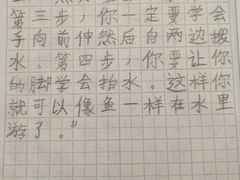 第三步，你一定要学会
手向前伸然后向两边拨
水。第四步，你要让你
的脚学会拍水。这样你
就可以像鱼一样在水里
游了。”